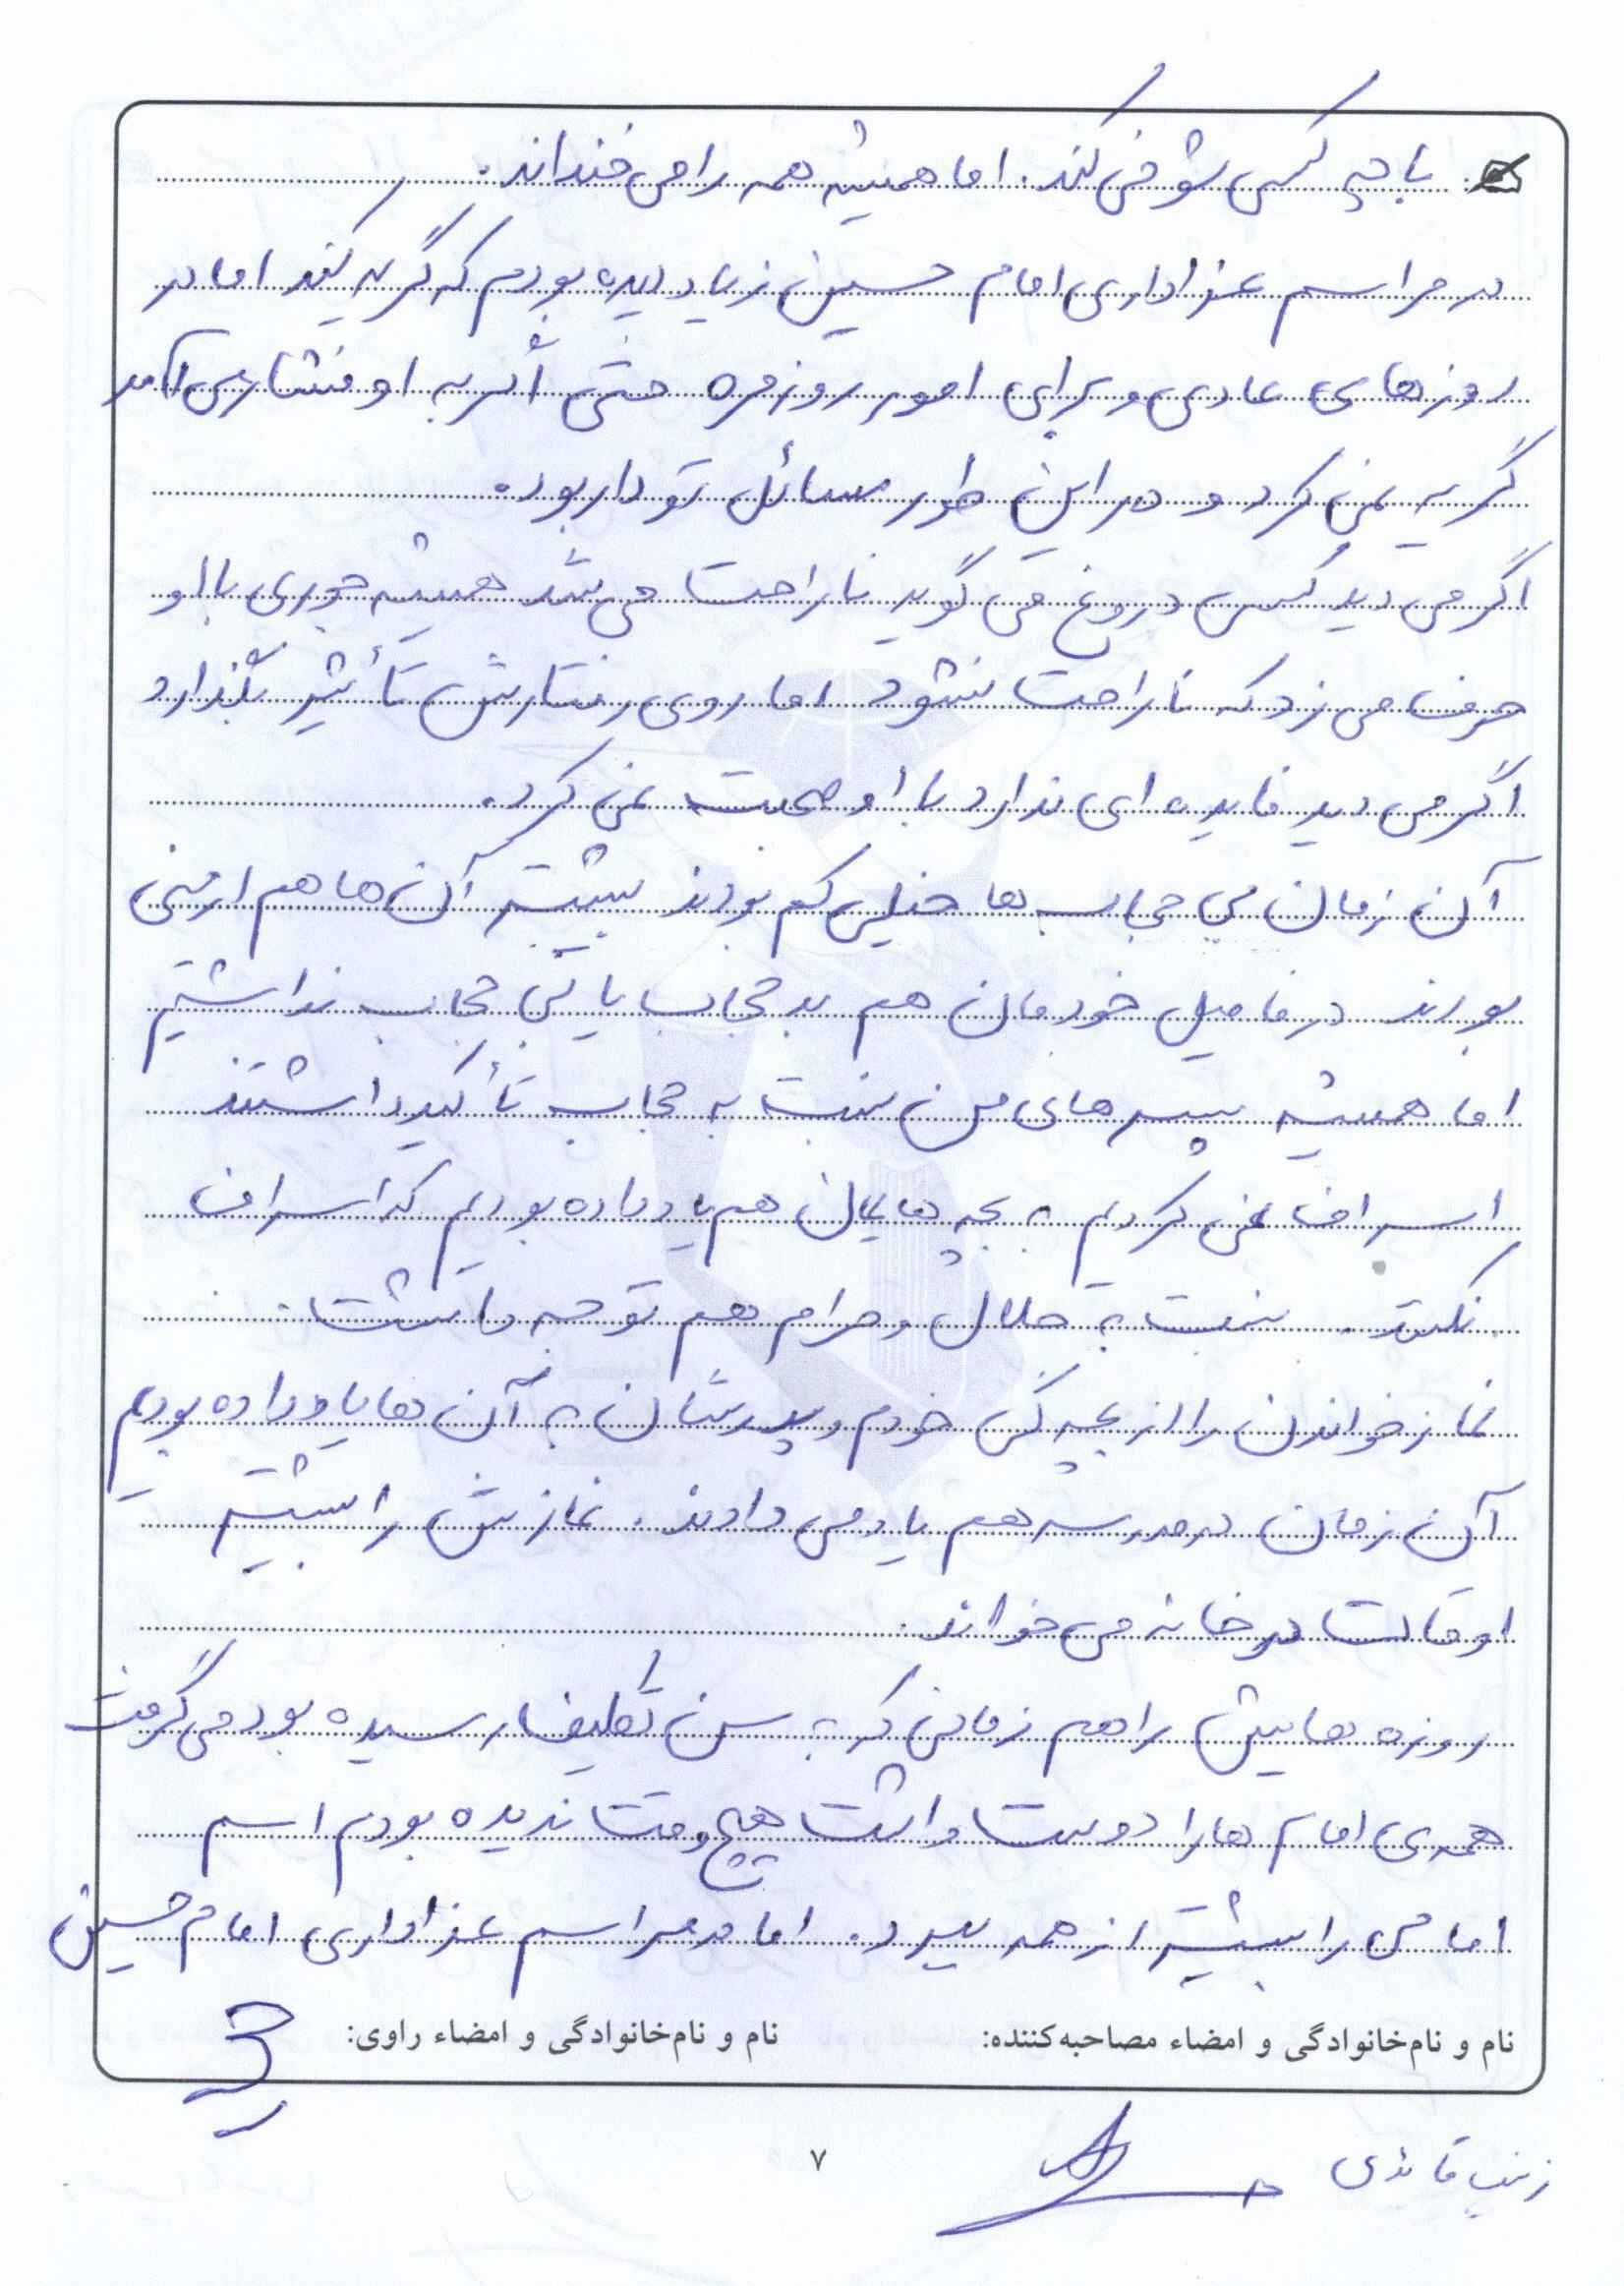 با چه کسی شوخی کند. اما همیشه همه را می خنداند.
در مراسم عزاداری امام حسین زیاد دیده بودم که گریه کند اما در
روزهای عادی و برای امور روزمره حتی اگر به او فشار می آمد
گریه نمی کرد و در این طور مسائل تودار بود.
اگر می دید کسی دروغ می گوید ناراحت می شد همیشه جوری با او
حرف می زد که ناراحت نشود اما روی رفتارش تأثیر بگذارد
اگر می دید فایده ای ندارد با او صحبت نمی کرد.
آن زمان بی حجاب ها خیلی کم بودند بیشتر آن ها هم ارمنی
بودند در فامیل خودمان هم بد حجاب یا بی حجاب نداشتیم
اما همیشه پسرهای من نسبت به حجاب تأکید داشتند
اسراف نمی کردیم به بچه هایمان هم یاد داده بودیم که اسراف
نکنند. نسبت به حلال و حرام هم توجه داشت.
نماز خواندن را از بچه گی خودم و پدرشان به آن ها یاد داده بودیم
آن زمان در مدرسه هم یاد می دادند. نمازش را بیشتر
اوقات در خانه می خواند.
روزه هایش را هم زمانی که به سن تکلیف رسیده بود می گرفت
همه ی امام ها را دوست داشت هیچ وقت ندیده بودم اسم
امامی را بیشتر از همه ببرد. اما در مراسم عزاداری امام حسین
نام و نام‌خانوادگی و امضاء مصاحبه‌کننده: نام و نام‌خانوادگی و امضاء راوی:
زینب قائدی
۷